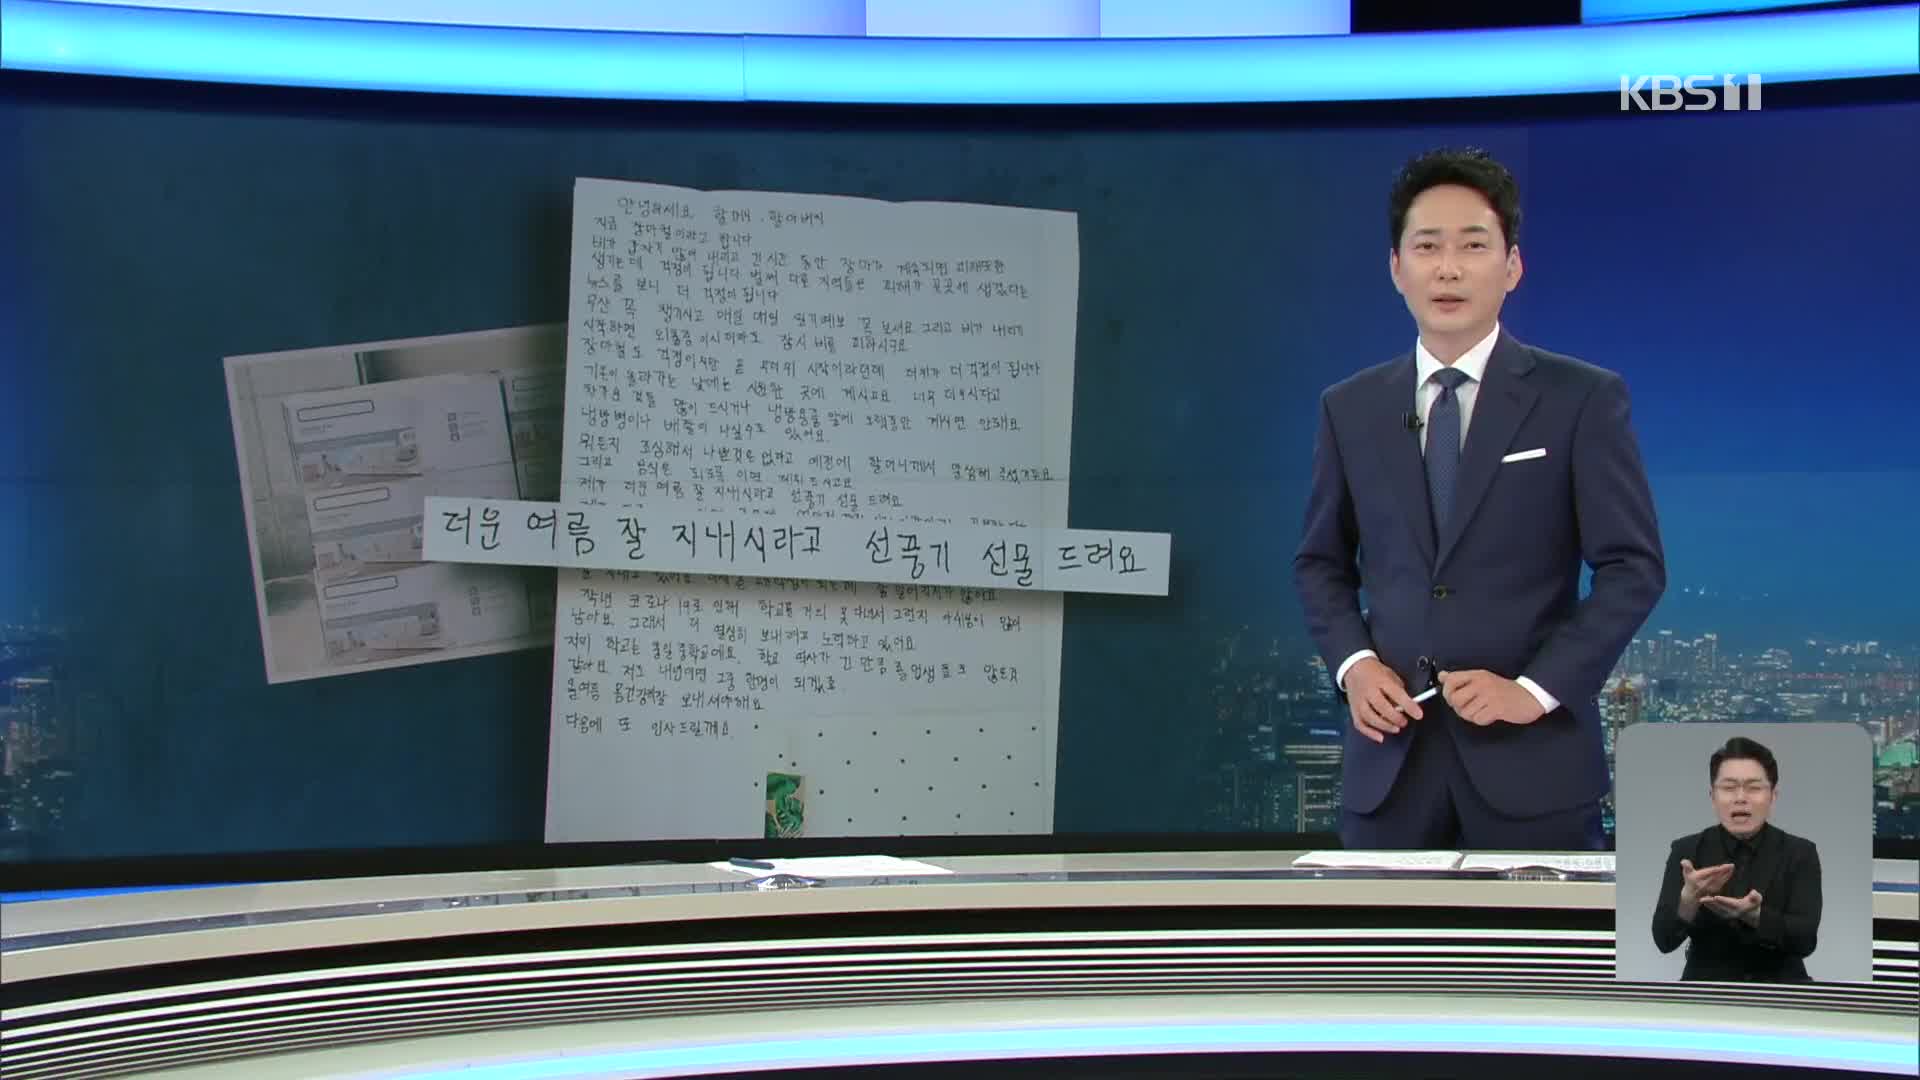 KBS 1
안녕하세요 할머니, 할아버지
지금 장마철이라고 합니다
비가 갑자기 많이 내리고 긴 시간 동안 장마가 계속되면 피해또한
생기는데 걱정이 됩니다 벌써 다른 지역들은 피해가 곳곳에 생겼다는
뉴스를 보니 더 걱정이 됩니다
우산 꼭 챙기시고 매일 매일 일기예보 꼭 보세요 그리고 비가 내리기
시작하면 외출중 이시더라도 잠시 비를 피하시구요
장마철도 걱정이지만 곧 무더위 시작이라던데 더위가 더 걱정이 됩니다
기온이 올라가는 낮에는 시원한 곳에 계시고요 너무 더우시다고
차가운 것들 많이 드시거나 냉방용품 앞에 오랫동안 계시면 안돼요
냉방병이나 배탈이 나실수도 있어요.
뭐든지 조심해서 나쁜것은 없다고 예전에 할머니께서 말씀해 주셨거든요
그리고 음식은 되도록 이면 드시고요
제가 더운 여름 잘 지내시라고 선풍기 선물 드려요
더운 여름 잘 지내시라고 선풍기 선물 드려요
작년 코로나 19로 인해 학교를 거의 못 다녀서 그런지 아쉬움이 많이
남아요. 그래서 더 열심히 보내려고 노력하고 있어요
저희 학교는 중학교에요. 학교 역사가 긴 만큼 졸업생도 많은것
같아요. 저도 내년이면 그중 한명이 되겠죠.
올여름 몸건강히잘 보내셔야해요
다음에 또 인사드릴게요.